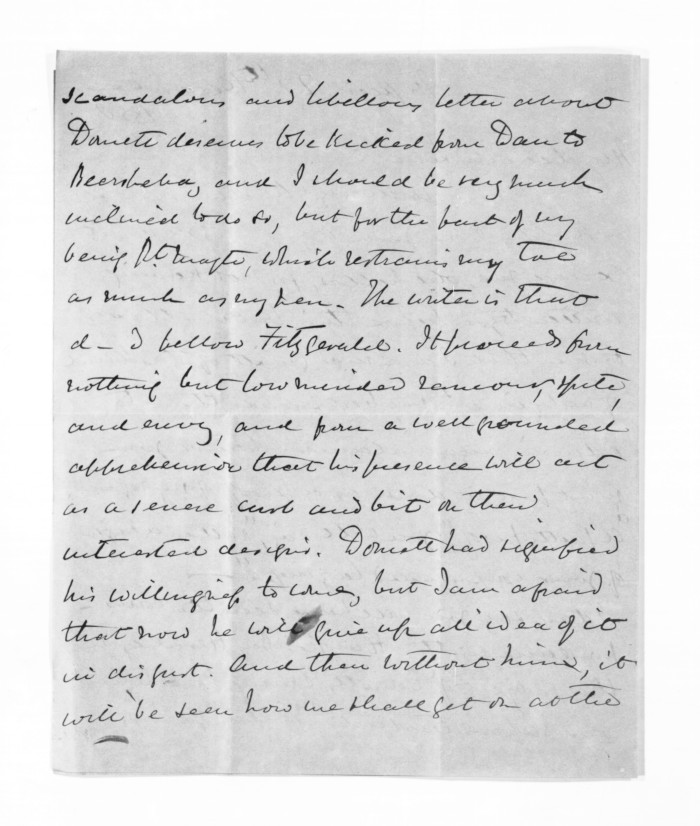 scandalous and libellous letter about
Domett deserves to be kicked from Dan to
Beersheba, and I should be very much
inclined to do so, but for the fact of my
being Rt. Magte, which restrains my toe
as much as my pen. The writer is that
d— d fellow Fitzgerald. It proceeds from
nothing but low minded rancour, spite,
and envy, and from a well grounded
apprehension that his presence will act
as a severe curb and bit on their
interested designs. Domett had signified
his willingness to come, but I am afraid
that now he will give up all idea of it
in disgust. And then without him, it
will be seen how we shall get on at the